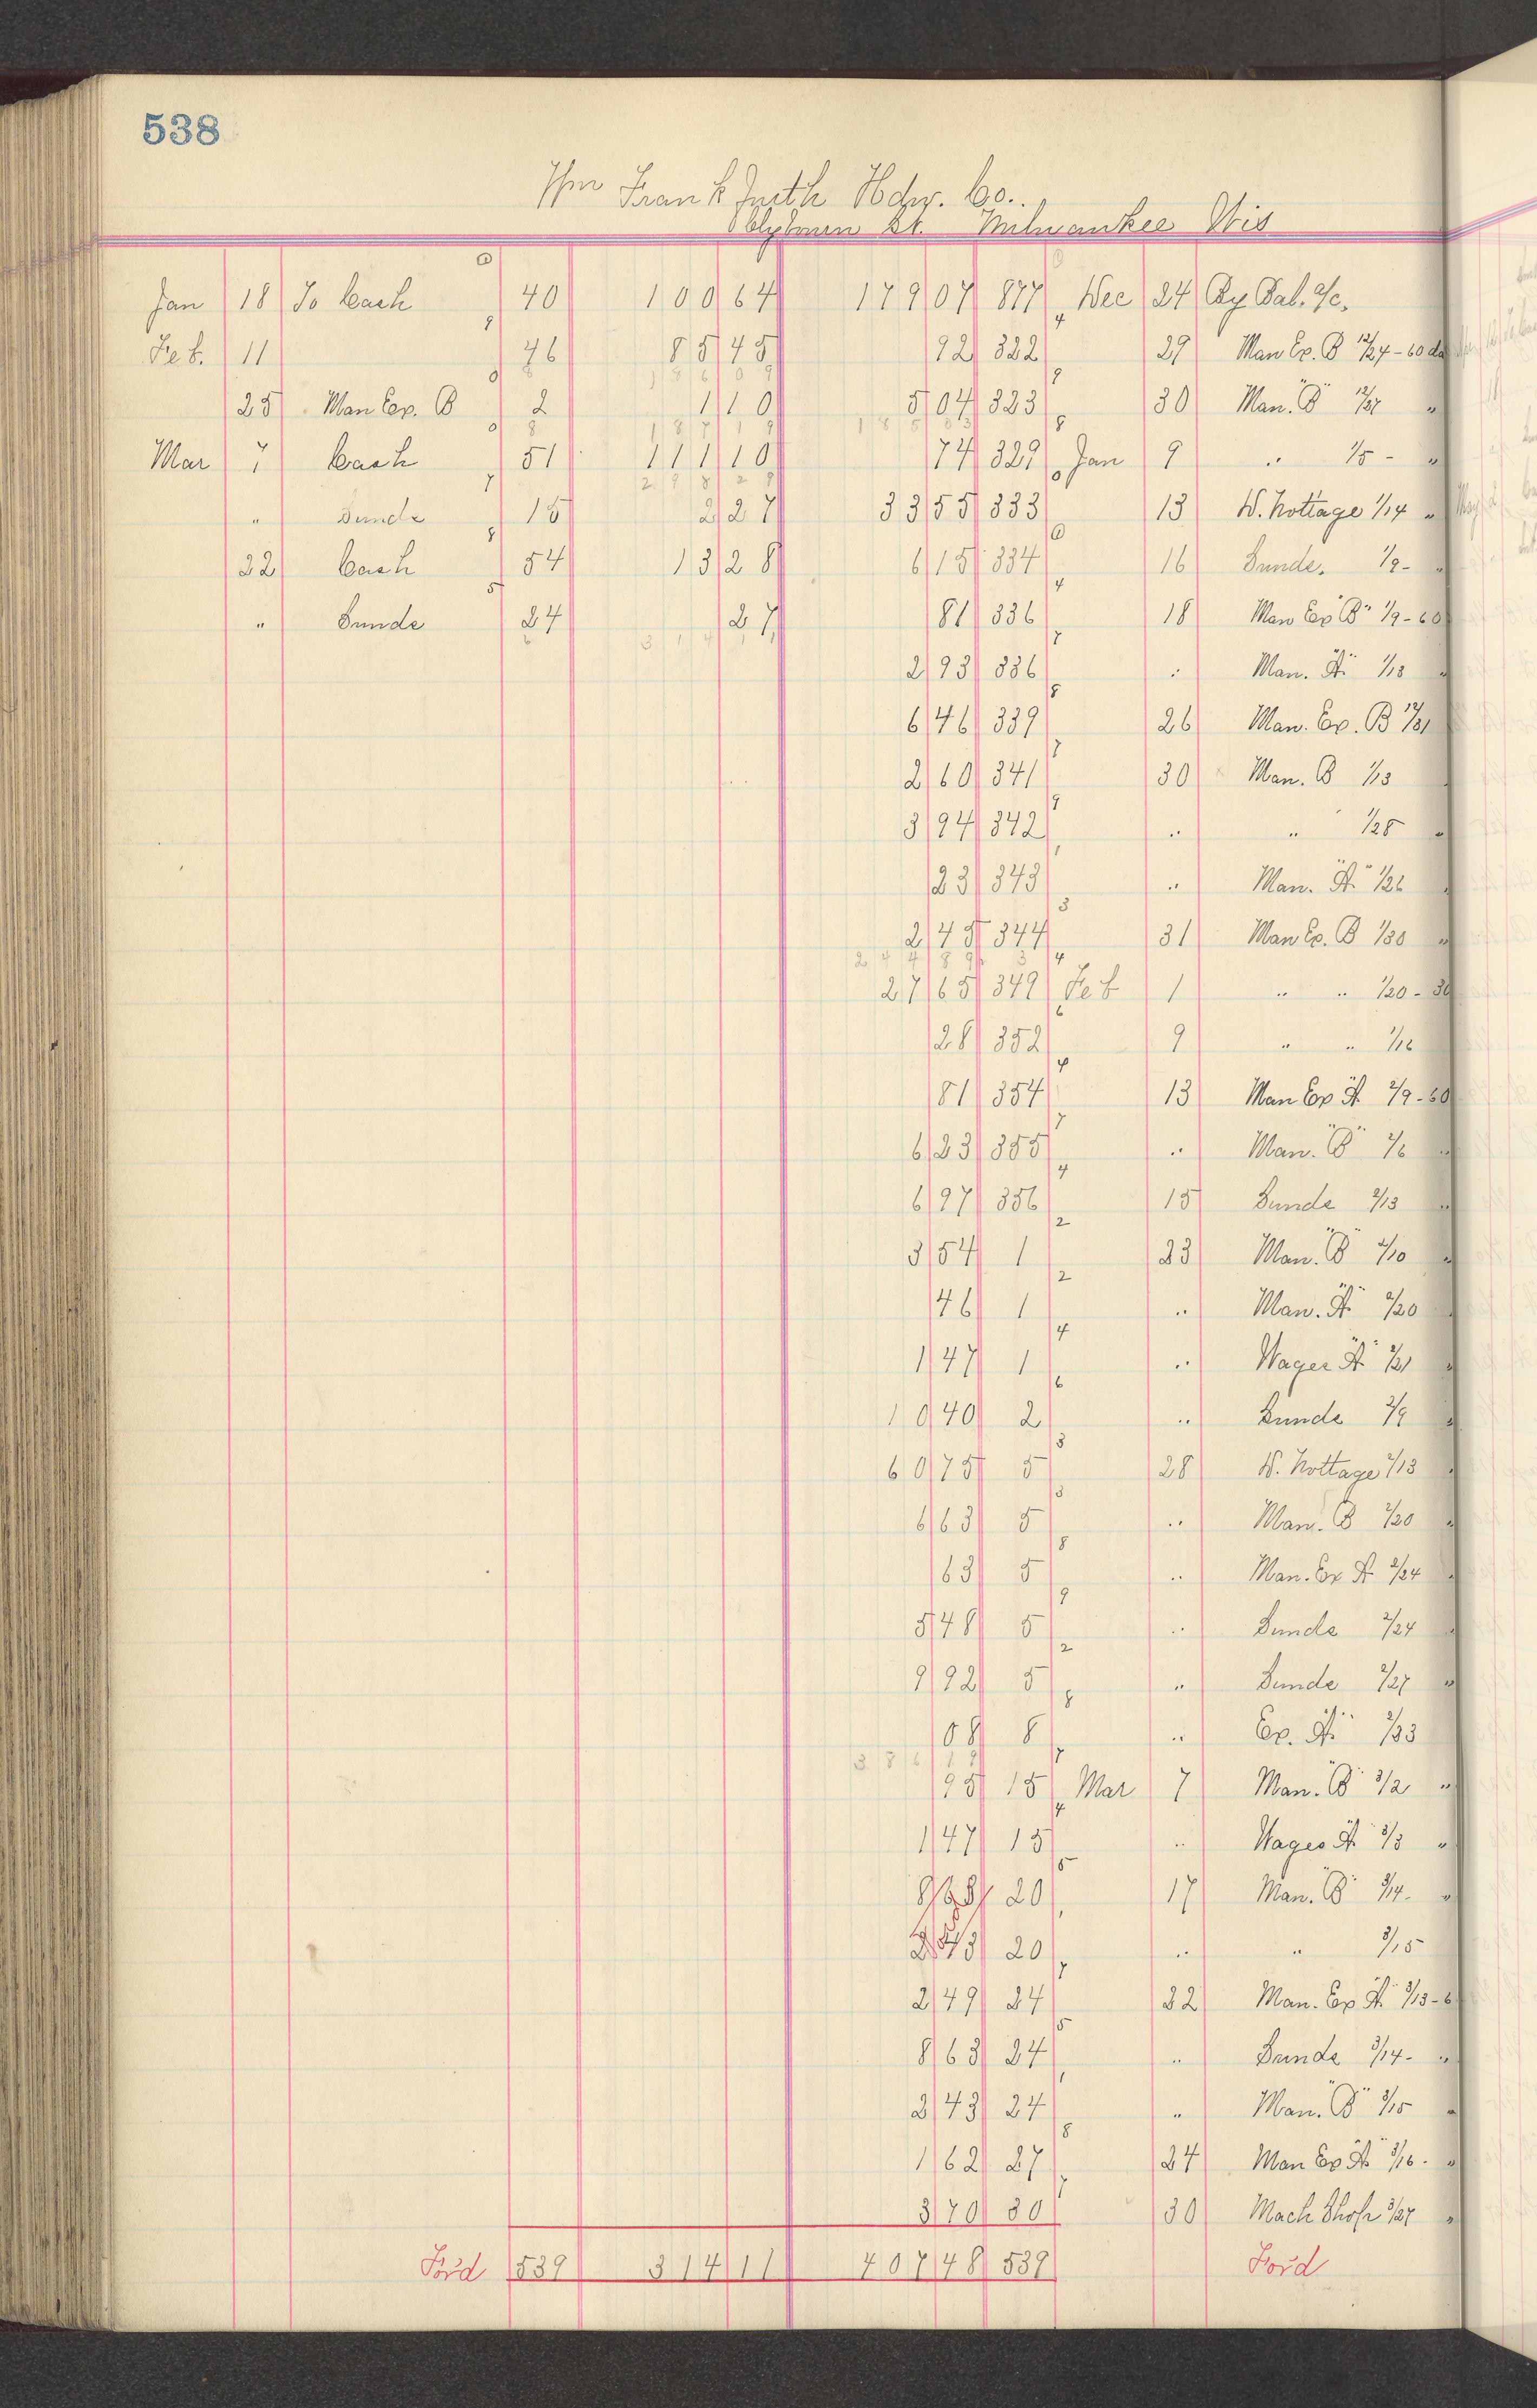 538
Wm Frankfurth Hdw. Co..
Clybourn St. Milwaukee Wis
Jan 18 To Cash 40 100 64 179 07 877 Dec 24 By Bal. a/c.
Feb. 11 46 85 45 92 322 29 Man Ex. B 12/27-60 da
25 Man Exp. B 2 1 10 5 04 323 30 Man. "B" 12/27 "
Mar 7 Cash 51 111 10 74 329 Jan 9 " 1/5 - "
" Sunds 15 2 27 33 55 333 13 W. Nottage 1/14 "
22 Cash 54 13 28 6 15 334 16 Sunds. 1/9- "
" Sunds 24 27 81 336 18 Man Exp "B" 1/9-60
2 93 336 " Man. "A" 1/13 "
6 46 339 26 Man. Ex. B 12/31
2 60 341 30 Man. B 1/13
3 94 342 " " 1/25 "
23 343 " Man. "A" 1/26
2 45 344 31 Man Ex. B 1/30 "
27 65 349 Feb 1 " " 1/20-30
28 352 9 " " 1/16
81 354 13 Man Exp "A" 2/9-60
6 23 355 " Man. "B" 2/6 "
6 97 356 15 Sunds 2/13 "
3 54 1 23 Man. "B" 2/10 "
46 1 " Man. "A" 2/20
1 47 1 " Wages "A" 2/21 "
10 40 2 " Sunds 2/9 "
60 75 5 28 W. Nottage 2/13
6 63 5 " Man. B 2/20 "
63 5 " Man. Ex A 2/24
5 48 5 " Sunds 2/24
9 92 5 " Sunds 2/27 "
08 8 " Ex. "A" 2/23
95 15 Mar 7 Man. "B" 3/2 "
1 47 15 " Wages "A" 3/3 "
20 17 Man. "B" 3/14- "
20 " " 3/15
2 49 24 22 Man. Exp "A" 3/13-6
8 63 24 " Sunds 3/14- "
2 43 24 " Man. "B" 3/15 "
1 62 27 24 Man Exp "A" 3/16- "
3 70 30 30 Mach Shop 3/27 "
For'd 539 314 11 407 48 539 For'd